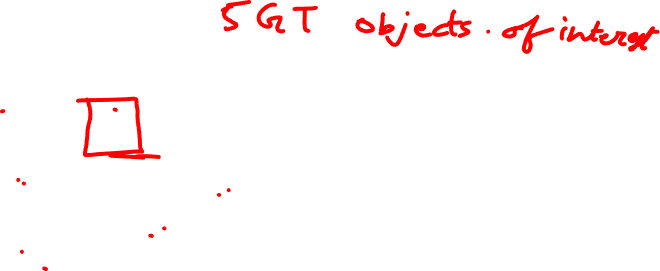 5 GT objects. of interest